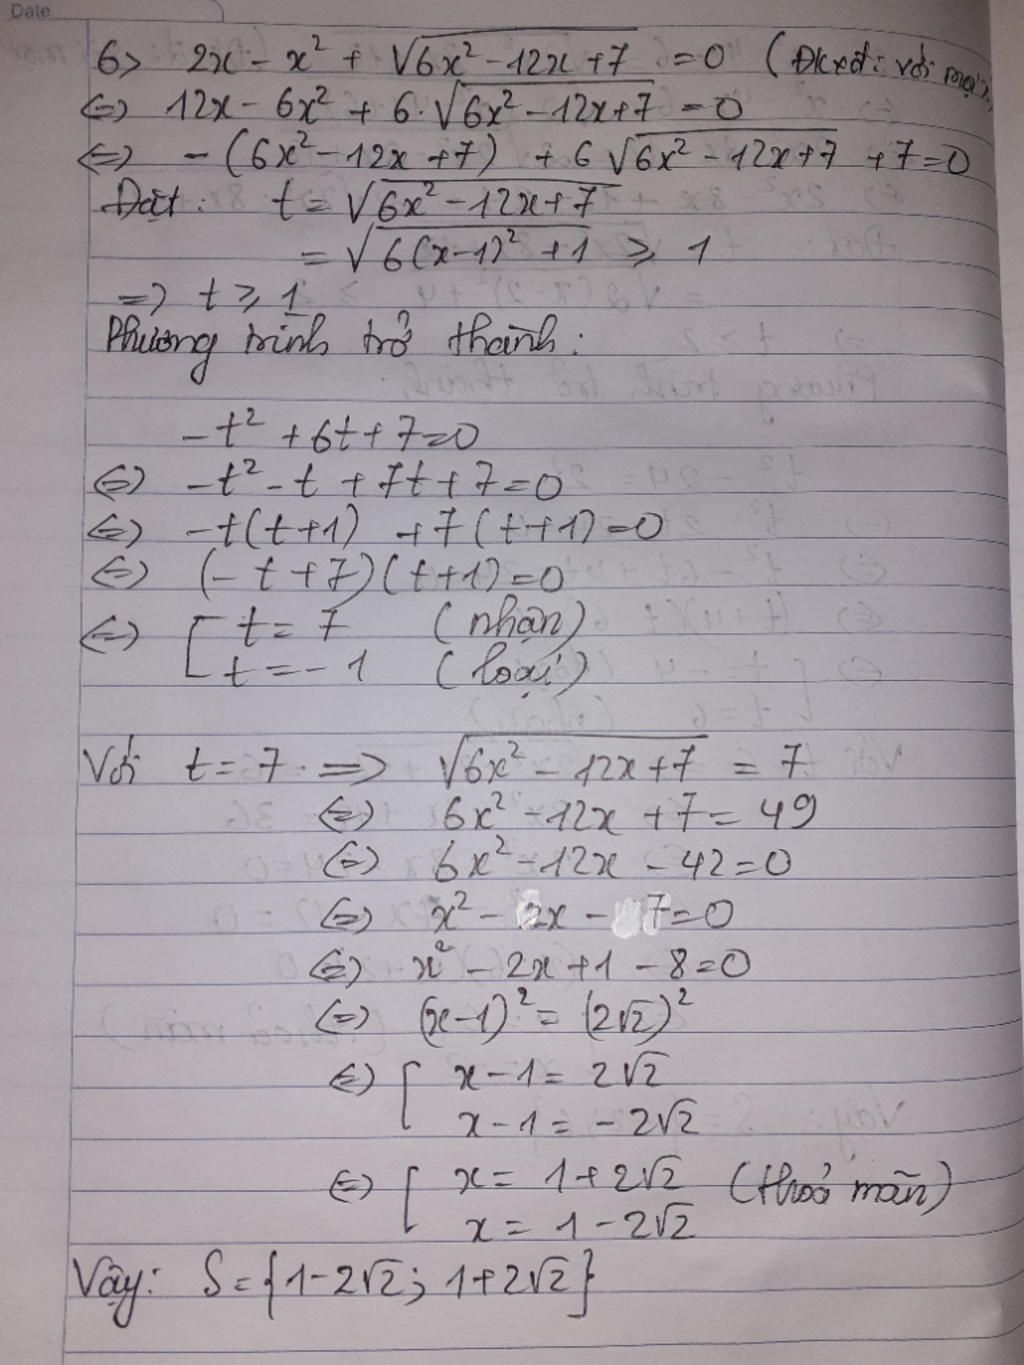 Date
6> 2x - x² + √(6x² - 12x + 7) = 0 (Đkxđ: với mọi x
⇔ 12x - 6x² + 6.√(6x² - 12x + 7) = 0
⇔ - (6x² - 12x + 7) + 6√(6x² - 12x + 7) + 7 = 0
Đặt: t = √(6x² - 12x + 7)
= √(6(x-1)² + 1) ⩾ 1
=> t ⩾ 1
Phương trình trở thành:
-t² + 6t + 7 = 0
⇔ -t² - t + 7t + 7 = 0
⇔ -t(t+1) + 7(t+1) = 0
⇔ (-t+7)(t+1) = 0
⇔ [ t = 7 (nhận)
t = -1 (loại)
Với t = 7 => √(6x² - 12x + 7) = 7
⇔ 6x² - 12x + 7 = 49
⇔ 6x² - 12x - 42 = 0
⇔ x² - 2x - 7 = 0
⇔ x² - 2x + 1 - 8 = 0
⇔ (x-1)² = (2√2)²
⇔ [ x - 1 = 2√2
x - 1 = -2√2
⇔ [ x = 1 + 2√2 (thoả mãn)
x = 1 - 2√2
Vậy: S = {1-2√2; 1+2√2}